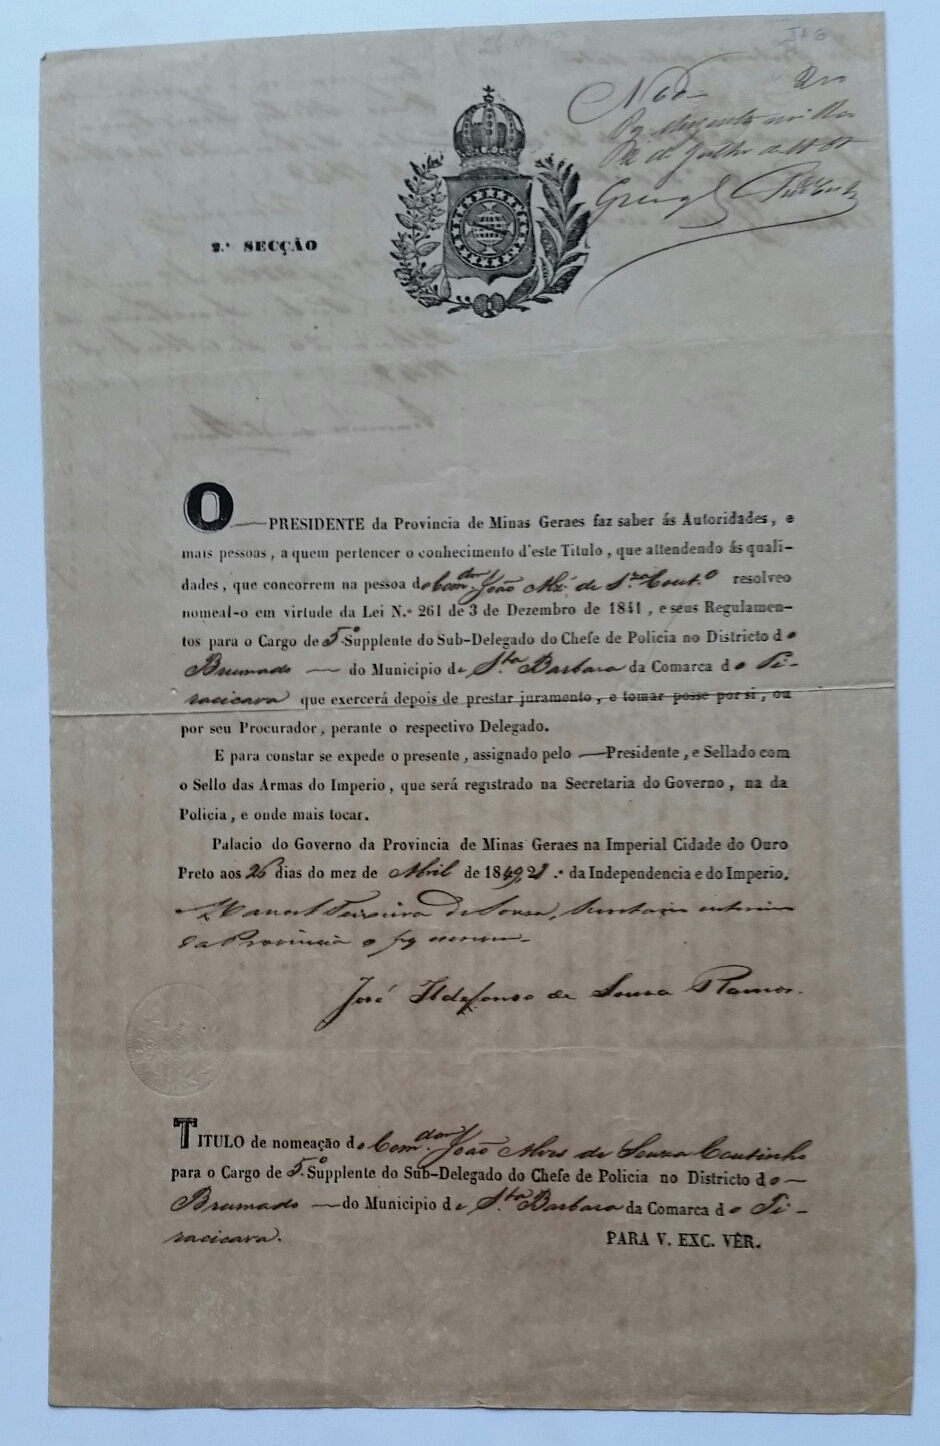 JAG
26-4-49
Pg
de Julho de
2.ª SECÇÃO
O PRESIDENTE da Provincia de Minas Geraes faz saber ás Autoridades, e
mais pessoas, a quem pertencer o conhecimento d'este Titulo, que attendendo ás quali-
dades, que concorrem na pessoa do Com.dor João Alz' de S.za Cout.o resolveo
nomeal-o em virtude da Lei N.º 261 de 3 de Dezembro de 1841, e seus Regulamen-
tos para o Cargo de 5.º Supplente do Sub-Delegado do Chefe de Policia no Districto do
Brumado — do Municipio de S.ta Barbara da Comarca do Pi-
racicava que exercerá depois de prestar juramento, e tomar posse por si, ou
por seu Procurador, perante o respectivo Delegado.
E para constar se expede o presente, assignado pelo —Presidente, e Sellado com
o Sello das Armas do Imperio, que será registrado na Secretaria do Governo, na da
Policia, e onde mais tocar.
Palacio do Governo da Provincia de Minas Geraes na Imperial Cidade do Ouro
Preto aos 26 dias do mez de Abril de 1849, 28.º da Independencia e do Imperio.
Manoel Teixeira de Souza, Secretario interino
da Provincia o fez escrever.
José Ildefonso de Sousa Ramos.
TITULO de nomeação do Com.dor João Alves de Souza Coutinho
para o Cargo de 5.º Supplente do Sub-Delegado do Chefe de Policia no Districto do—
Brumado — do Municipio de S.ta Barbara da Comarca do Pi-
racicava.
PARA V. EXC. VÊR.